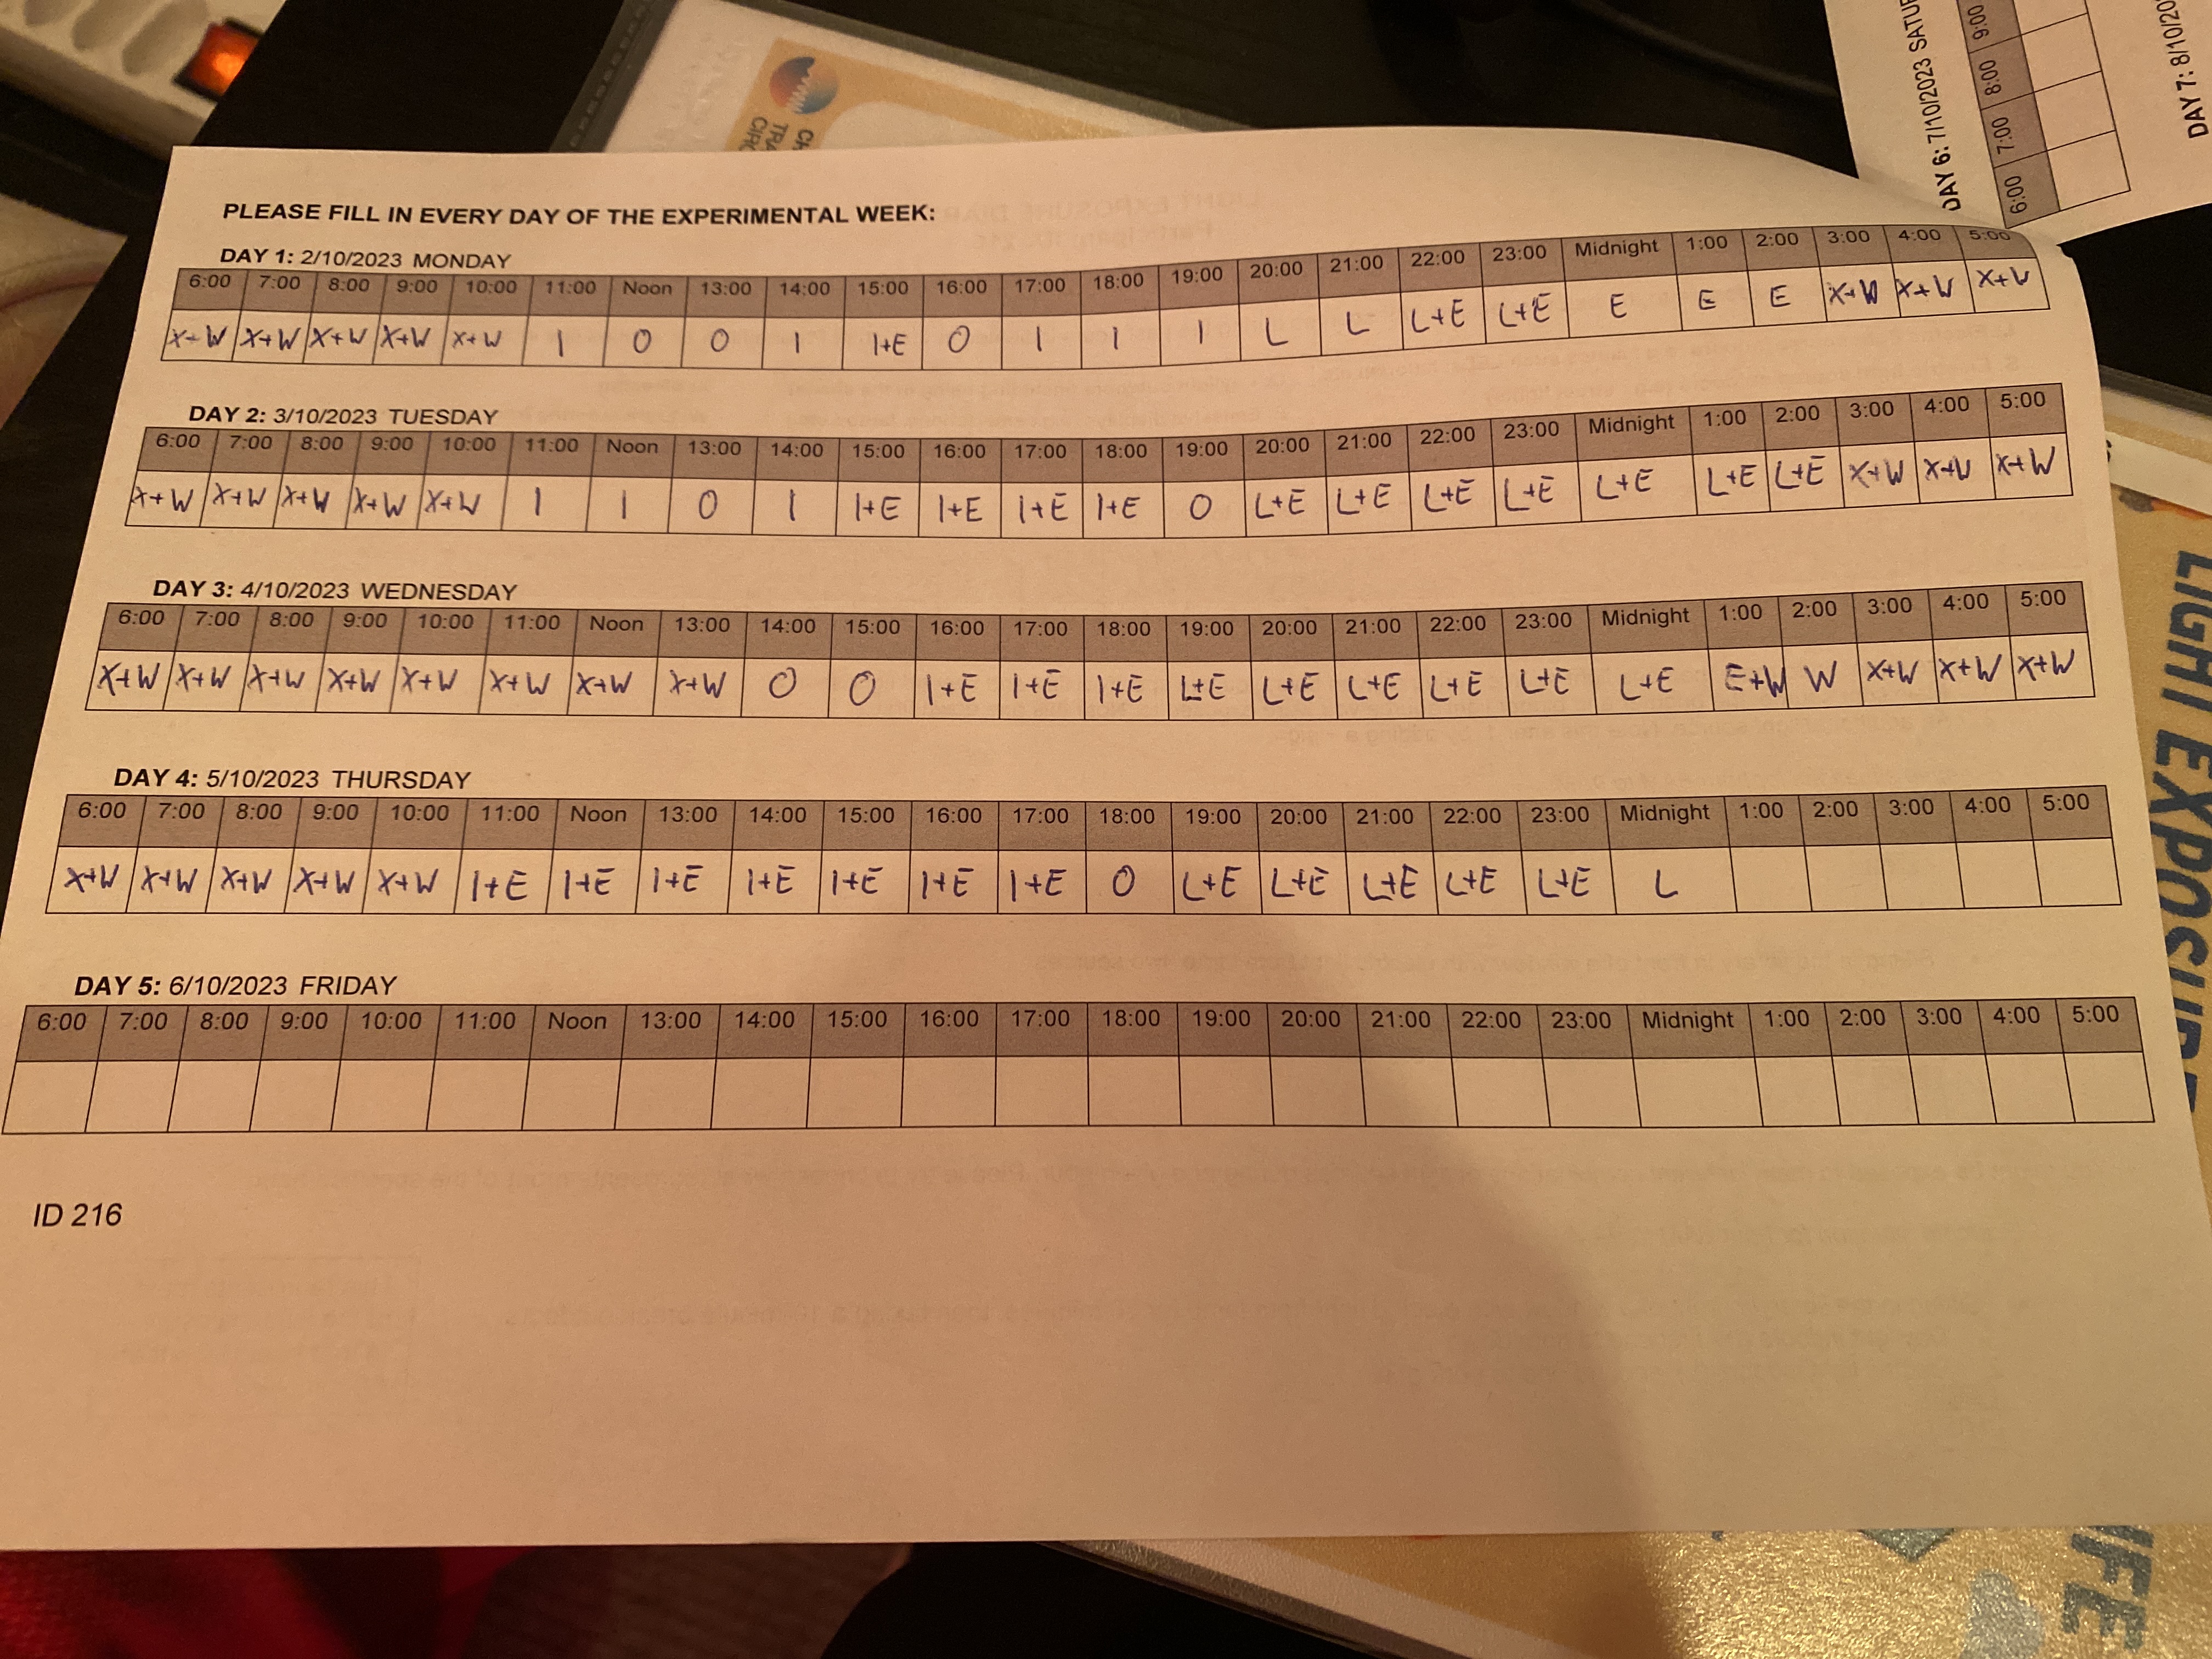 PLEASE FILL IN EVERY DAY OF THE EXPERIMENTAL WEEK:
DAY 1: 2/10/2023 MONDAY
6:00 7:00 8:00 9:00 10:00 11:00 Noon 13:00 14:00 15:00 16:00 17:00 18:00 19:00 20:00 21:00 22:00 23:00 Midnight 1:00 2:00 3:00 4:00 5:00
X+W X+W X+W X+W X+W I O O I I+E O I I I L L L+E L+E E E E X+W X+W X+W
DAY 2: 3/10/2023 TUESDAY
6:00 7:00 8:00 9:00 10:00 11:00 Noon 13:00 14:00 15:00 16:00 17:00 18:00 19:00 20:00 21:00 22:00 23:00 Midnight 1:00 2:00 3:00 4:00 5:00
X+W X+W X+W X+W X+W I I O I I+E I+E I+E I+E O L+E L+E L+E L+E L+E L+E L+E X+W X+W X+W
DAY 3: 4/10/2023 WEDNESDAY
6:00 7:00 8:00 9:00 10:00 11:00 Noon 13:00 14:00 15:00 16:00 17:00 18:00 19:00 20:00 21:00 22:00 23:00 Midnight 1:00 2:00 3:00 4:00 5:00
X+W X+W X+W X+W X+W X+W X+W X+W O O I+E I+E I+E L+E L+E L+E L+E L+E L+E E+W W X+W X+W X+W
DAY 4: 5/10/2023 THURSDAY
6:00 7:00 8:00 9:00 10:00 11:00 Noon 13:00 14:00 15:00 16:00 17:00 18:00 19:00 20:00 21:00 22:00 23:00 Midnight 1:00 2:00 3:00 4:00 5:00
X+W X+W X+W X+W X+W I+E I+E I+E I+E I+E I+E I+E O L+E L+E L+E L+E L+E L
DAY 5: 6/10/2023 FRIDAY
6:00 7:00 8:00 9:00 10:00 11:00 Noon 13:00 14:00 15:00 16:00 17:00 18:00 19:00 20:00 21:00 22:00 23:00 Midnight 1:00 2:00 3:00 4:00 5:00
ID 216
DAY 6: 7/10/2023
6:00 7:00 8:00 9:00
DAY 7: 8/10/20
LIGHT EXPOSURE